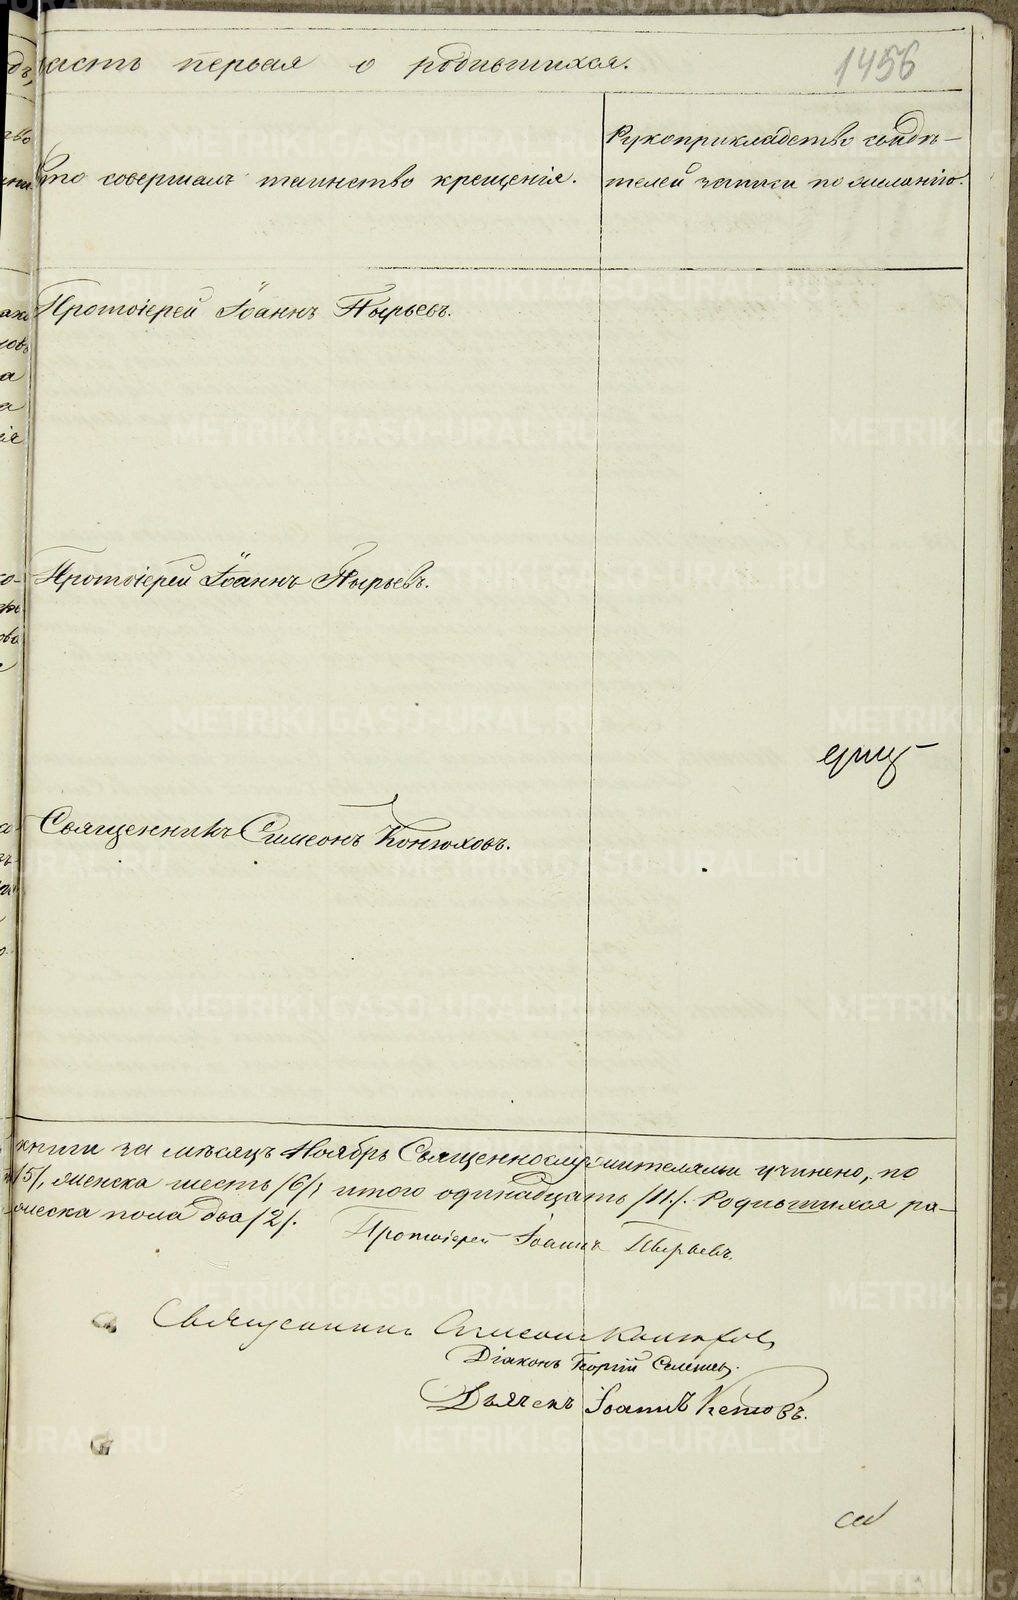 часть первая о родившихся.
1456
Кто совершалъ таинство крещенія.
Рукоприкладство свидѣ-
телей записи по желанію.
Протоіерей Іоаннъ Пырьевъ.
Протоіерей Іоаннъ Пырьевъ.
Священникъ Симеонъ Конюховъ.
книги за мѣсяцъ Ноябрь Священнослужителями учинено, по
/5/, женска шесть /6/, итого одинадцать /11./. Родившихся ра-
женска пола два /2/.
Протоіерей Іоаннъ Пырьевъ.
Священникъ Симеонъ Конюховъ
Діаконъ Георгій
Дьячекъ Іоаннъ Кетовъ.
METRIKI.GASO-URAL.RU